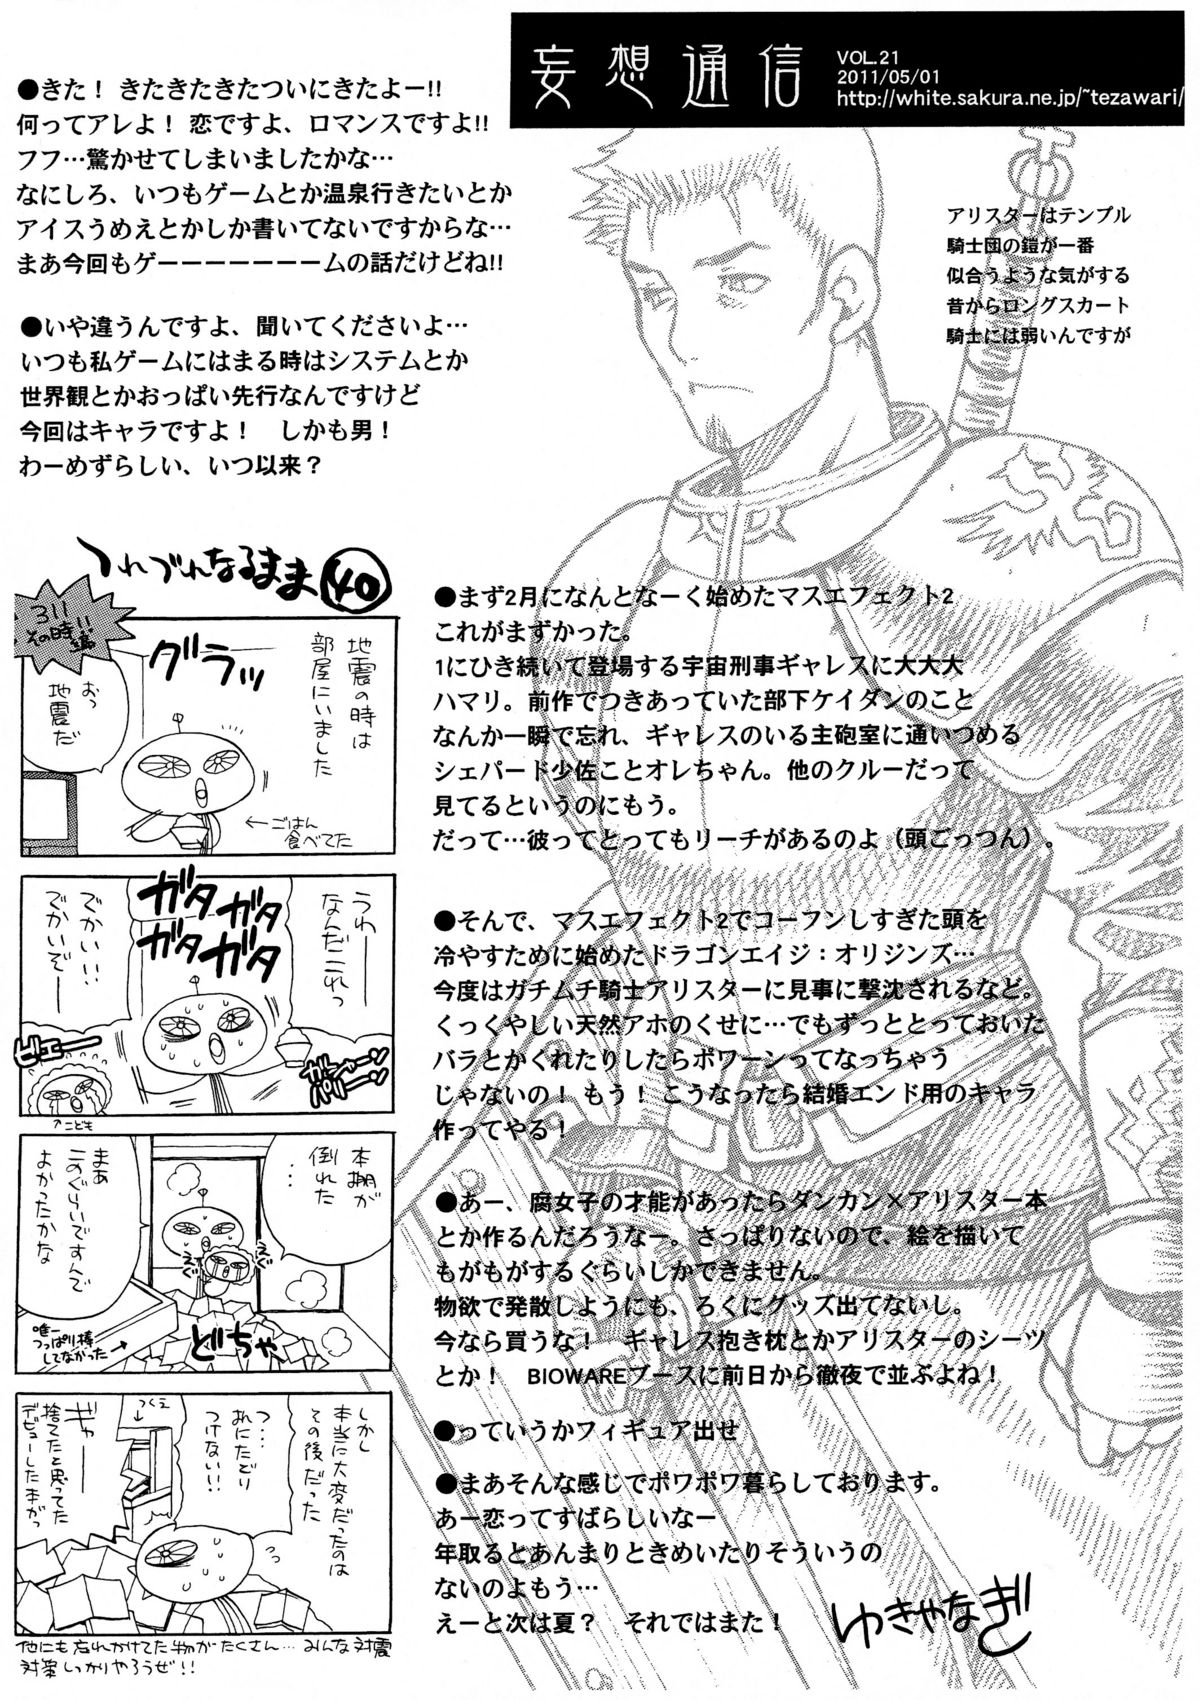 妄想通信
VOL.21
2011/05/01
http://white.sakura.ne.jp/~tezawari/
●きた！ きたきたきたついにきたよー!!
何ってアレよ！ 恋ですよ、ロマンスですよ!!
フフ…驚かせてしまいましたかな…
なにしろ、いつもゲームとか温泉行きたいとか
アイスうめえとかしか書いてないですからな…
まあ今回もゲーーーーーーームの話だけどね!!
●いや違うんですよ、聞いてくださいよ…
いつも私ゲームにはまる時はシステムとか
世界観とかおっぱい先行なんですけど
今回はキャラですよ！　しかも男！
わーめずらしい、いつ以来？
アリスターはテンプル
騎士団の鎧が一番
似合うような気がする
昔からロングスカート
騎士には弱いんですが
●まず2月になんとなーく始めたマスエフェクト2
これがまずかった。
1にひき続いて登場する宇宙刑事ギャレスに大大大
ハマリ。前作でつきあっていた部下ケイダンのこと
なんか一瞬で忘れ、ギャレスのいる主砲室に通いつめる
シェパード少佐ことオレちゃん。他のクルーだって
見てるというのにもう。
だって…彼ってとってもリーチがあるのよ（頭ごっつん）。
●そんで、マスエフェクト2でコーフンしすぎた頭を
冷やすために始めたドラゴンエイジ：オリジンズ…
今度はガチムチ騎士アリスターに見事に撃沈されるなど。
くっくやしい天然アホのくせに…でもずっととっておいた
バラとかくれたりしたらポワーンってなっちゃう
じゃないの！ もう！ こうなったら結婚エンド用のキャラ
作ってやる！
●あー、腐女子の才能があったらダンカン×アリスター本
とか作るんだろうなー。さっぱりないので、絵を描いて
もがもがするぐらいしかできません。
物欲で発散しようにも、ろくにグッズ出てないし。
今なら買うな！　ギャレス抱き枕とかアリスターのシーツ
とか！　BIOWAREブースに前日から徹夜で並ぶよね！
●っていうかフィギュア出せ
●まあそんな感じでポワポワ暮らしております。
あー恋ってすばらしいなー
年取るとあんまりときめいたりそういうの
ないのよもう…
えーと次は夏？　それではまた！
ゆきやなぎ
つれづれなるまま40
3.11
その時!!
編
地震の時は
部屋にいました
グラッ
おっ
地震だ
←ごはん
食べてた
うわー
なんだこれっ
ガタガタ
ガタガタ
でかい!!
でかいぞー
ビエー
ガシャーン
パリーン
↑こども
本棚が
倒れた
…
まあ
このぐらいですんで
よかったかな
えぐ
えぐ
どちゃ
唯一
つっぱり棒
してなかった
しかし
本当に大変だったのは
その後だった
つ…
机にたどり
つけない!!
つくえ
ギャー
捨てたと思ってた
デビューした本がっ
他にも忘れかけてた物がたくさん… みんな対震
対策しっかりやろうぜ!!